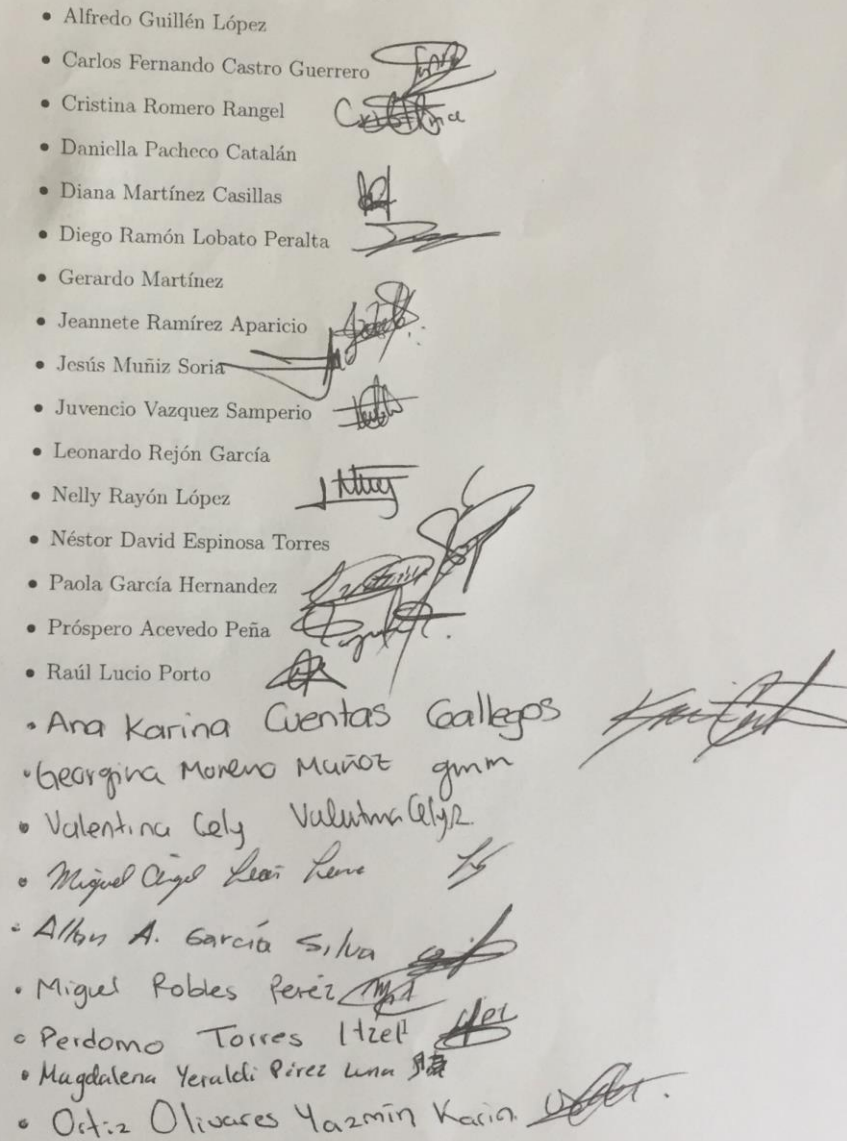 • Alfredo Guillén López
• Carlos Fernando Castro Guerrero
• Cristina Romero Rangel Cristina
• Daniella Pacheco Catalán
• Diana Martínez Casillas
• Diego Ramón Lobato Peralta
• Gerardo Martínez
• Jeannete Ramírez Aparicio
• Jesús Muñiz Soria
• Juvencio Vazquez Samperio
• Leonardo Rejón García
• Nelly Rayón López
• Néstor David Espinosa Torres
• Paola García Hernandez
• Próspero Acevedo Peña
• Raúl Lucio Porto
• Ana Karina Cuentas Gallegos
• Georgina Moreno Muñoz gmm
• Valentina Cely
• Miguel Angel León
• A. García Silva
• Miguel Robles Peréz
• Perdomo Torres Itzel
• Magdalena Yeraldi Pérez Luna
• Ortiz Olivares Yazmín Karin